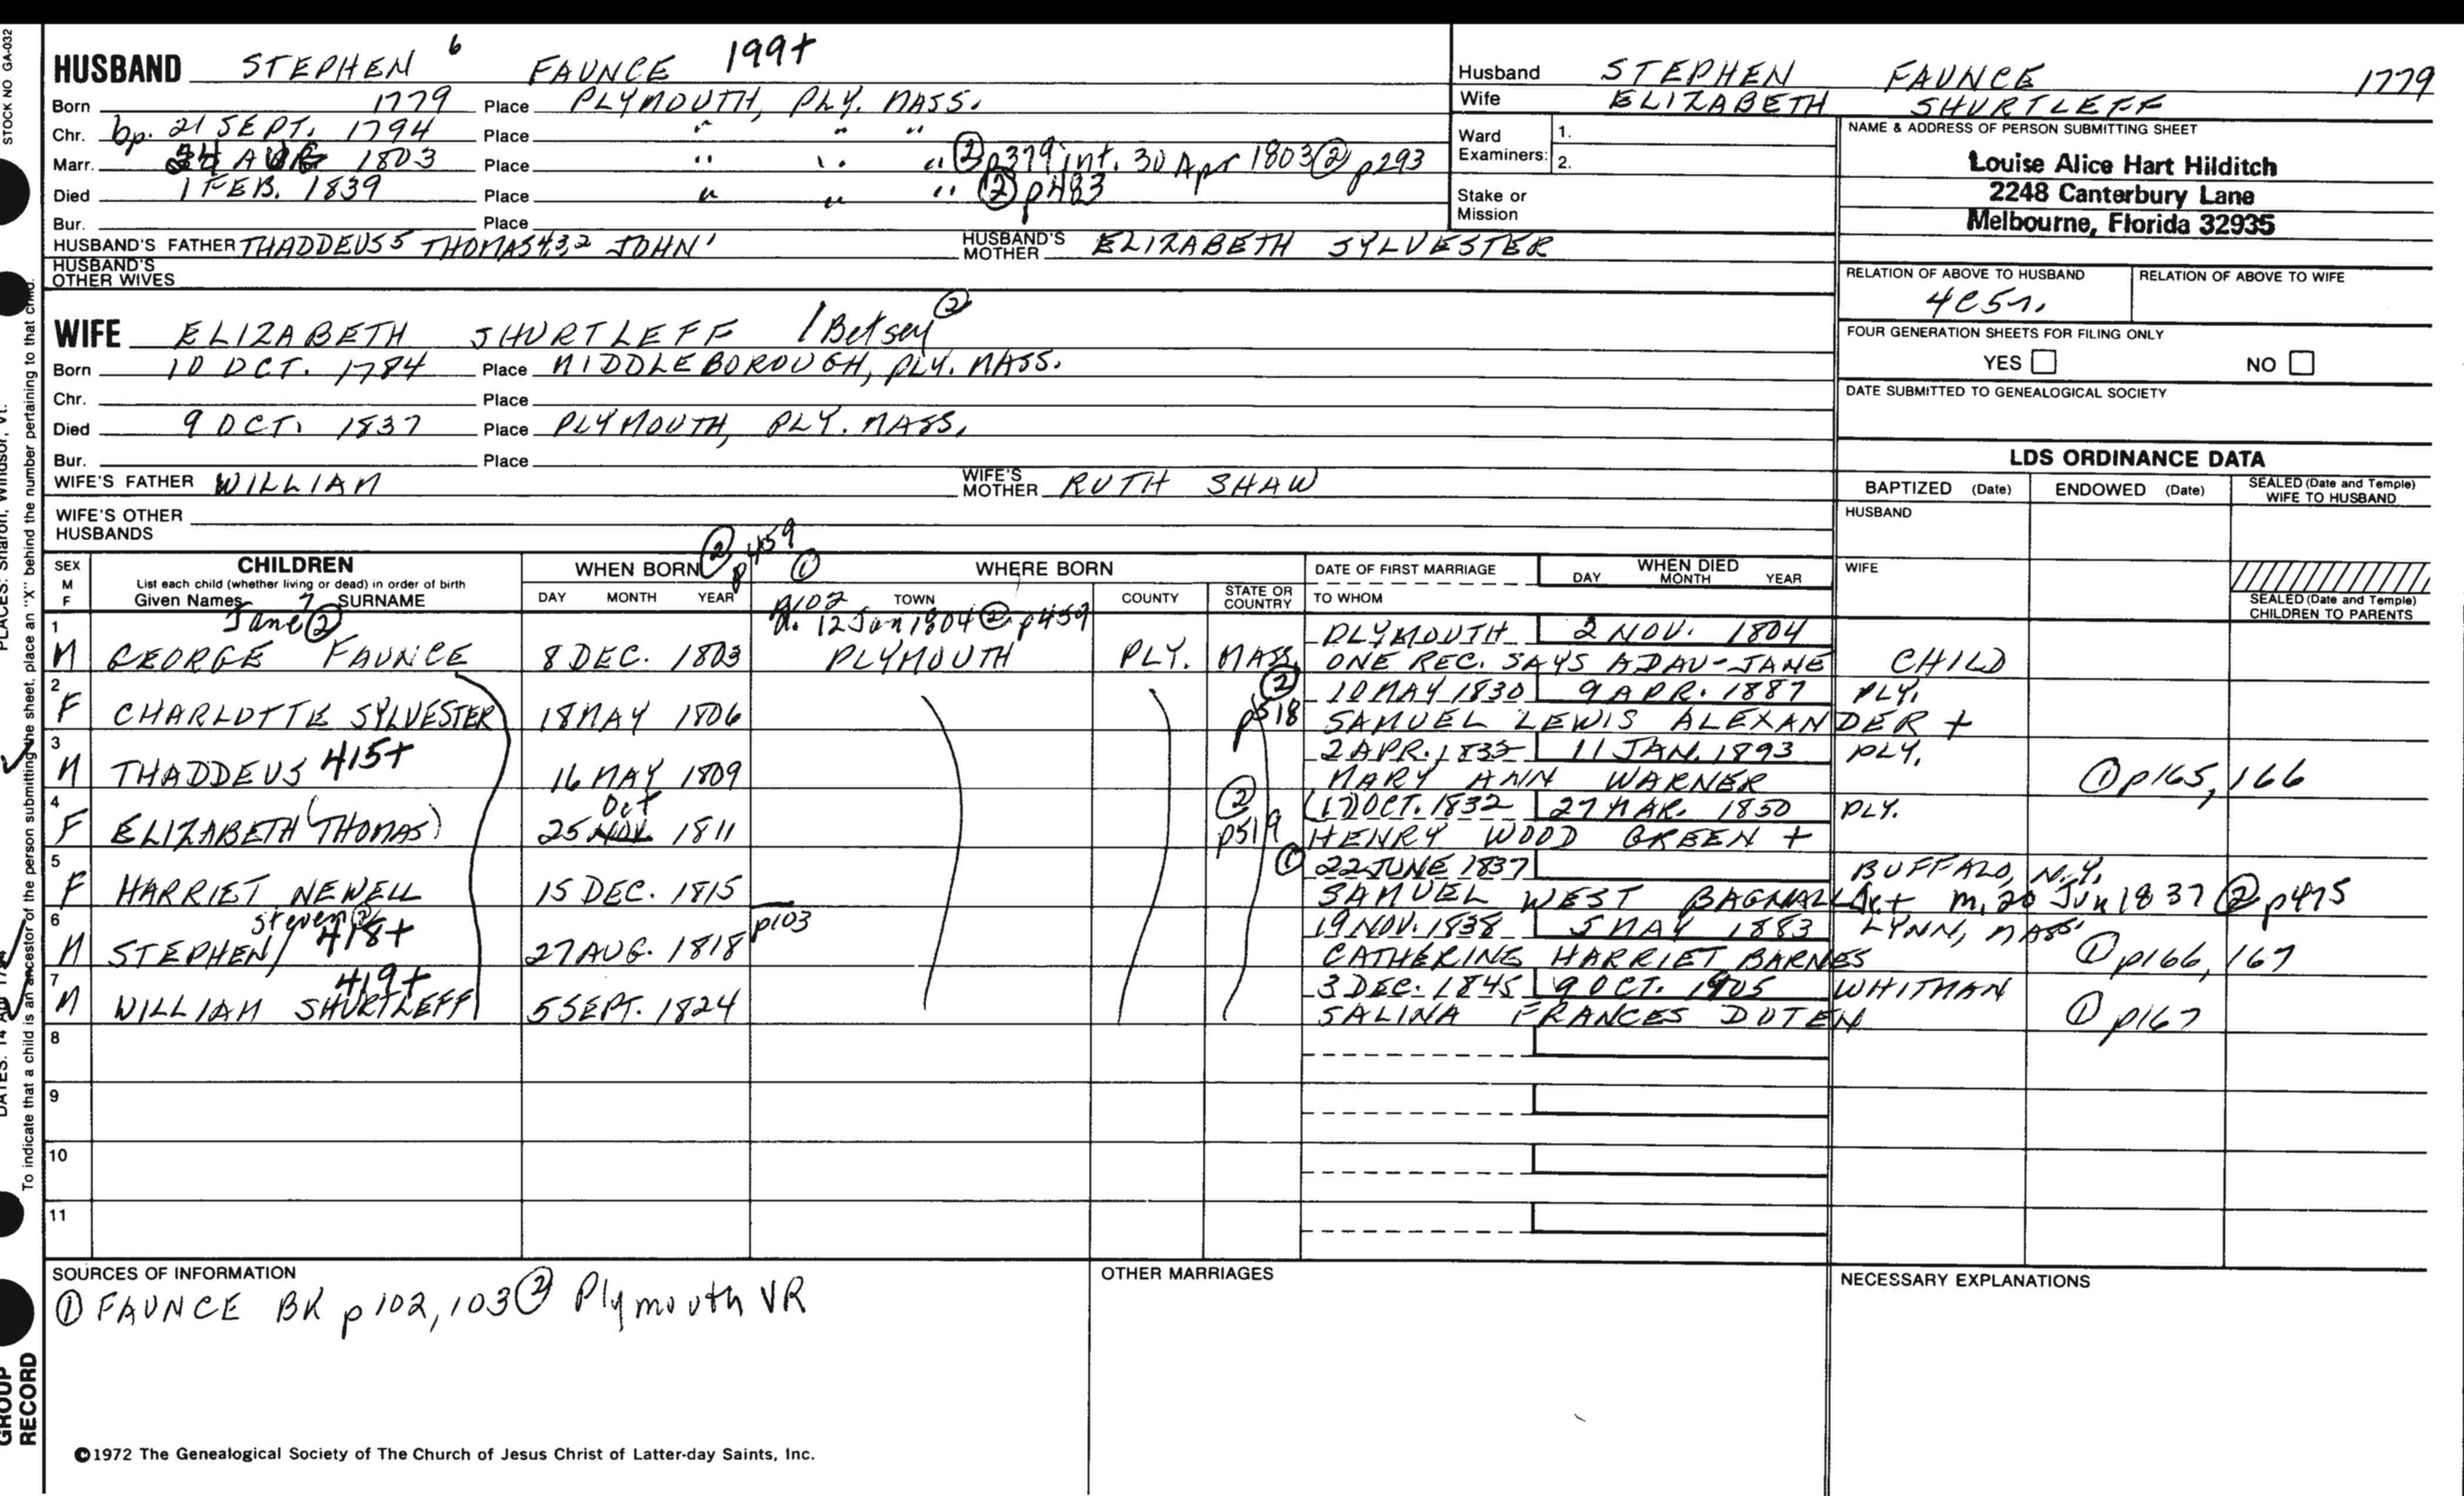 STOCK NO GA-032
HUSBAND STEPHEN 6 FAUNCE 199+
Born 1779 Place PLYMOUTH, PLY. MASS.
Chr. bp. 21 SEPT. 1794 Place " " "
Marr. AUG 1803 Place " " " ② p379 int. 30 Apr 1803 ② p293
Died 1 FEB. 1839 Place " " " ② p483
Bur. Place
HUSBAND'S FATHER THADDEUS 5 THOMAS 4,3,2 JOHN 1 HUSBAND'S MOTHER ELIZABETH SYLVESTER
HUSBAND'S OTHER WIVES
Husband STEPHEN FAUNCE 1779
Wife ELIZABETH SHURTLEFF
Ward Examiners: 1.
2.
Stake or Mission
NAME & ADDRESS OF PERSON SUBMITTING SHEET
Louise Alice Hart Hilditch
2248 Canterbury Lane
Melbourne, Florida 32935
RELATION OF ABOVE TO HUSBAND RELATION OF ABOVE TO WIFE
4C5r.
FOUR GENERATION SHEETS FOR FILING ONLY
YES NO
DATE SUBMITTED TO GENEALOGICAL SOCIETY
WIFE ELIZABETH SHURTLEFF / Betsey ②
Born 10 OCT. 1784 Place MIDDLEBOROUGH, PLY. MASS.
Chr. Place
Died 9 OCT. 1837 Place PLYMOUTH, PLY. MASS.
Bur. Place
WIFE'S FATHER WILLIAM WIFE'S MOTHER RUTH SHAW
WIFE'S OTHER HUSBANDS
LDS ORDINANCE DATA
BAPTIZED (Date) ENDOWED (Date) SEALED (Date and Temple) WIFE TO HUSBAND
HUSBAND
WIFE
SEALED (Date and Temple) CHILDREN TO PARENTS
② p459 ①
SEX M F CHILDREN List each child (whether living or dead) in order of birth Given Names 7 SURNAME WHEN BORN DAY MONTH YEAR WHERE BORN TOWN COUNTY STATE OR COUNTRY DATE OF FIRST MARRIAGE TO WHOM WHEN DIED DAY MONTH YEAR
Jane ② p102 12 Jan 1804 ② p459
1 M GEORGE FAUNCE 8 DEC. 1803 PLYMOUTH PLY. MASS. PLYMOUTH 2 NOV. 1804
ONE REC. SAYS ADAU-JANE CHILD
2 F CHARLOTTE SYLVESTER 18 MAY 1806 ② p518 10 MAY 1830 9 APR. 1887 PLY.
SAMUEL LEWIS ALEXANDER +
3 M THADDEUS 415+ 16 MAY 1809 2 APR. 1835 11 JAN. 1893 PLY.
MARY ANN WARNER ① p165, 166
4 F ELIZABETH (THOMAS) 25 Oct NOV. 1811 ② p519 (17) OCT. 1832 27 MAR. 1850 PLY.
HENRY WOOD GREEN +
5 F HARRIET NEWELL 15 DEC. 1815 ① 22 JUNE 1837 BUFFALO, N.Y.
SAMUEL WEST BAGNALL m. 20 Jun 1837 ② p475
6 M STEPHEN / Steven ② 418+ 27 AUG. 1818 p103 19 NOV. 1838 5 MAY 1883 LYNN, MASS.
CATHERINE HARRIET BARNES ① p166, 167
7 M WILLIAM SHURTLEFF 419+ 5 SEPT. 1824 3 DEC. 1845 9 OCT. 1905 WHITMAN
SALINA FRANCES DOTEN ① p167
8
9
10
11
SOURCES OF INFORMATION
① FAUNCE BK p 102, 103 ② Plymouth VR
OTHER MARRIAGES
NECESSARY EXPLANATIONS
©1972 The Genealogical Society of The Church of Jesus Christ of Latter-day Saints, Inc.
PLACES: Sharon, Windsor, Vt.
To indicate that a child is an ancestor of the person submitting the sheet, place an "X" behind the number pertaining to that child.
GROUP RECORD